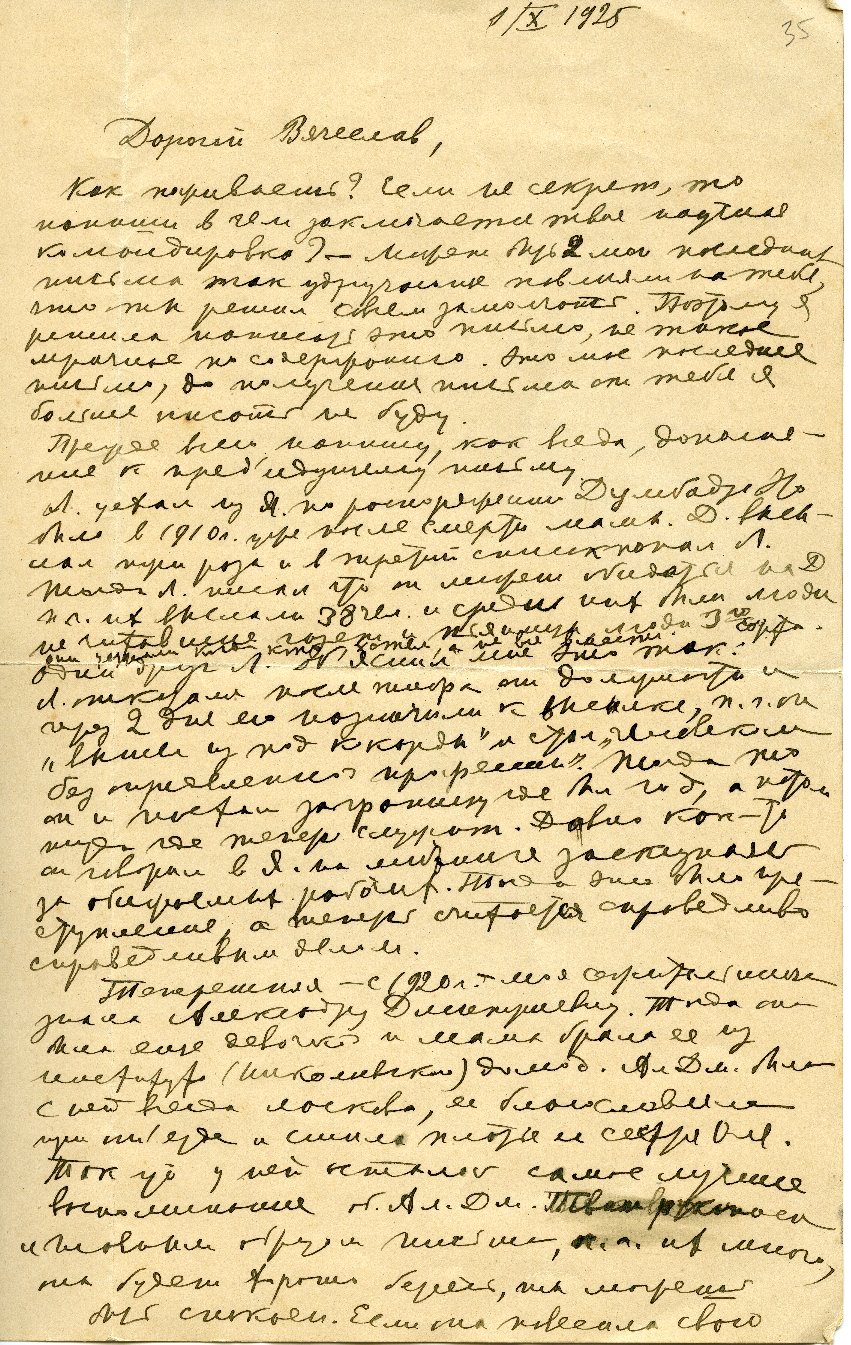 1/X 1925
35
Дорогой Вячеслав,
Как поживаешь? Если не секрет, то
напиши в чем заключается твоя научная
командировка? – Может быть 2 мои последних
письма так удручающе повлияли на тебя,
что ты решил совсем замолчать. Поэтому я
решила написать это письмо, не такое
мрачное по содержанию. Это мое последнее
письмо, до получения письма от тебя я
больше писать не буду.
Прежде всего напишу, как всегда, дополне-
ние к предыдущему письму
Л. уехал из Я. по распоряжению Думбадзе. Но
было в 1910 г. уже после смерти мамы. Д. высы-
лал три раза и в третий список попал Л.
Тогда Л. писал что он может обидеться на Д
п.ч. их выслали 38 чел. и среди них были люди
не читавшие газет и люди 3го сорта.
Один друг Л. объяснил мне это так:
Л. отказали после от должности и
через 2 дня его назначили к высылке, п.ч. он
„вышел из под кокарды" и стал „человеком
без определенной профессии". Тогда то
он и поехал заграницу где был год, а потом
туда где теперь служит. Давно как-то
он говорил в Я. на митинге заступаясь
за обижаемых рабочих. Тогда это было пре-
ступление, а теперь считается справедливо
справедливым делом.
Теперешняя – с 1920 г. – моя сожительница
знала Александру Дмитриевну. Тогда она
была еще девочкой и мама брала ее из
института (Николаевского) домой. Ал. Дм. была
с ней всегда ласкова, ее благословила
при отъезде и сшила платье сестре Оле.
Так что у ней осталось самое лучшее
воспоминание об Ал. Дм.
и главным образом письма, п.ч. их много,
она будет хорошо беречь, ты можешь
быть спокоен. Если она повесила свою